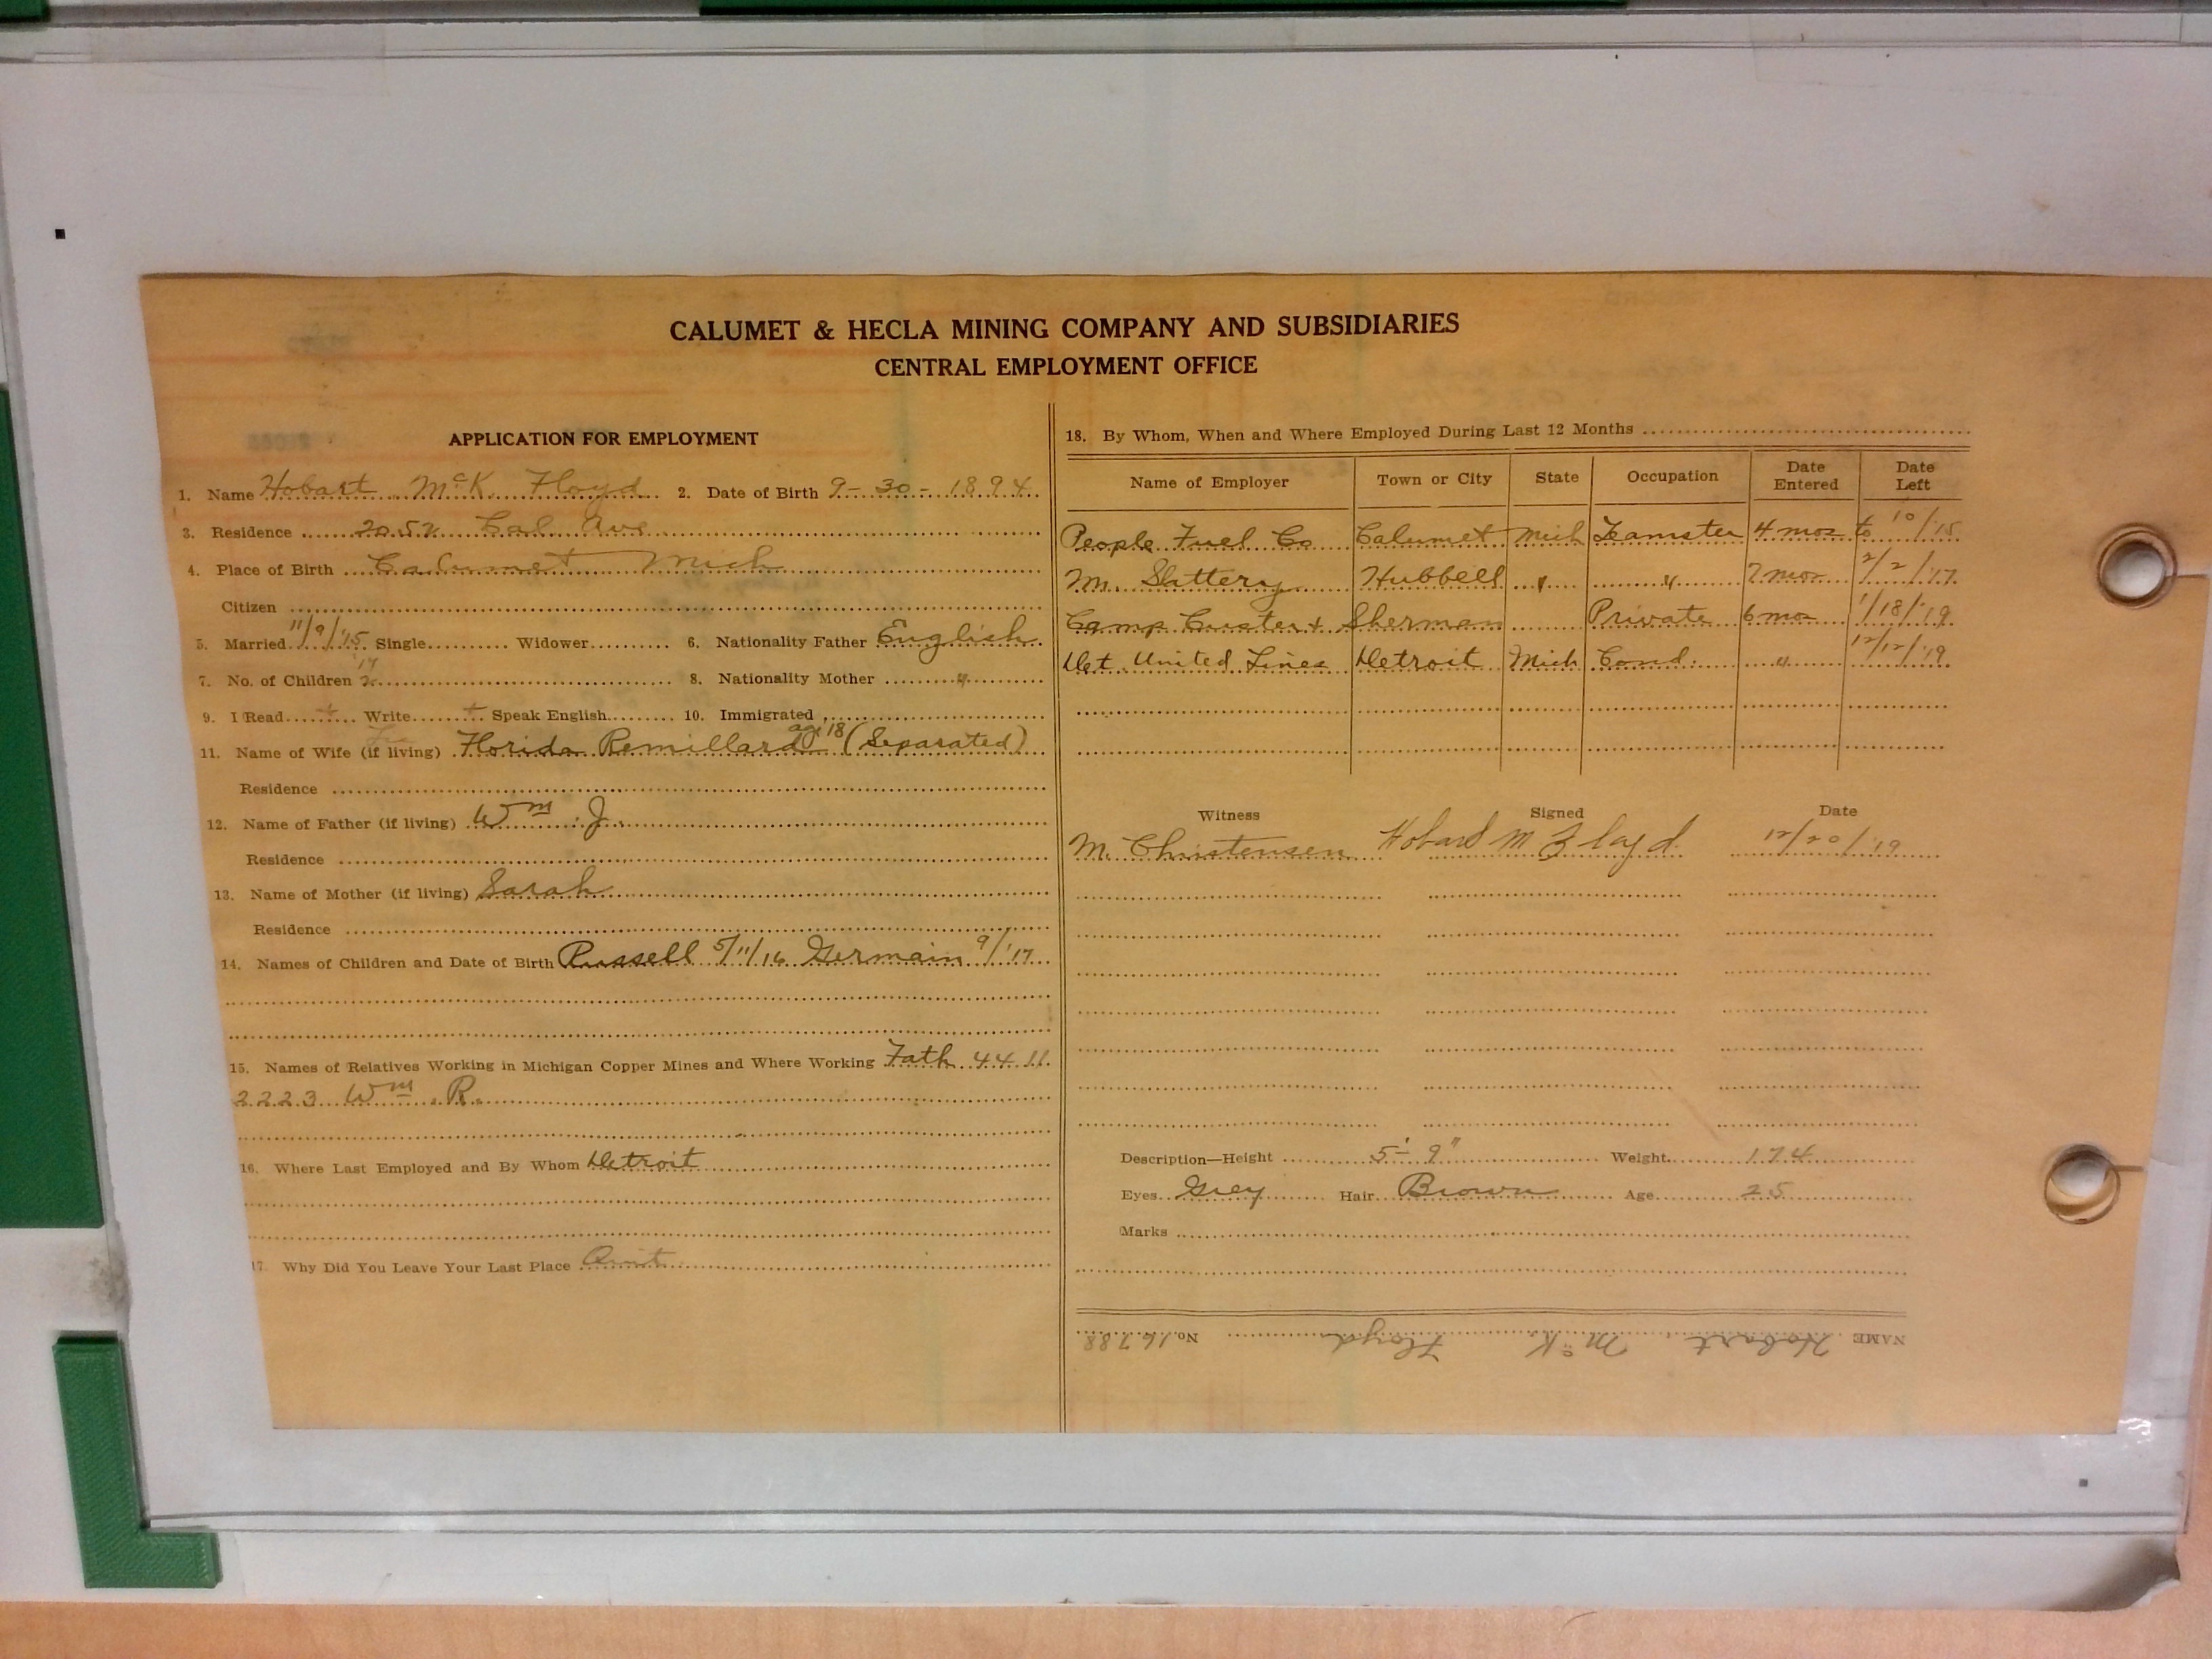 CALUMET & HECLA MINING COMPANY AND SUBSIDIARIES
CENTRAL EMPLOYMENT OFFICE
APPLICATION FOR EMPLOYMENT
1. Name Hobart McK Floyd 2. Date of Birth 9-30-1894
3. Residence 2052 Cal Ave
4. Place of Birth Calumet Mich
Citizen
5. Married 11/9/'15 Single Widower 6. Nationality Father English
7. No. of Children 2 8. Nationality Mother "
9. I Read + Write + Speak English 10. Immigrated
11. Name of Wife (if living) Florida Remillard age 18 (Separated)
Residence
12. Name of Father (if living) Wm J.
Residence
13. Name of Mother (if living) Sarah
Residence
14. Names of Children and Date of Birth Russell 5/11/16 Germain 9/'17
15. Names of Relatives Working in Michigan Copper Mines and Where Working Fath 4411
2223 Wm R.
16. Where Last Employed and By Whom Detroit
17. Why Did You Leave Your Last Place Quit
18. By Whom, When and Where Employed During Last 12 Months
Name of Employer Town or City State Occupation Date Entered Date Left
People Fuel Co Calumet Mich Teamster 4 mos to 10/'15
M. Slattery Hubbell " " 7 mos 2/2/'17
Camp Custer + Sherman Private 6 mos 1/18/'19
Det. United Lines Detroit Mich Cond. " 12/12/'19
Witness Signed Date
M. Christensen Hobard M Floyd 12/20/'19
Description—Height 5'-9" Weight 174
Eyes Grey Hair Brown Age 25
Marks
NAME Hobart McK Floyd No. 16788